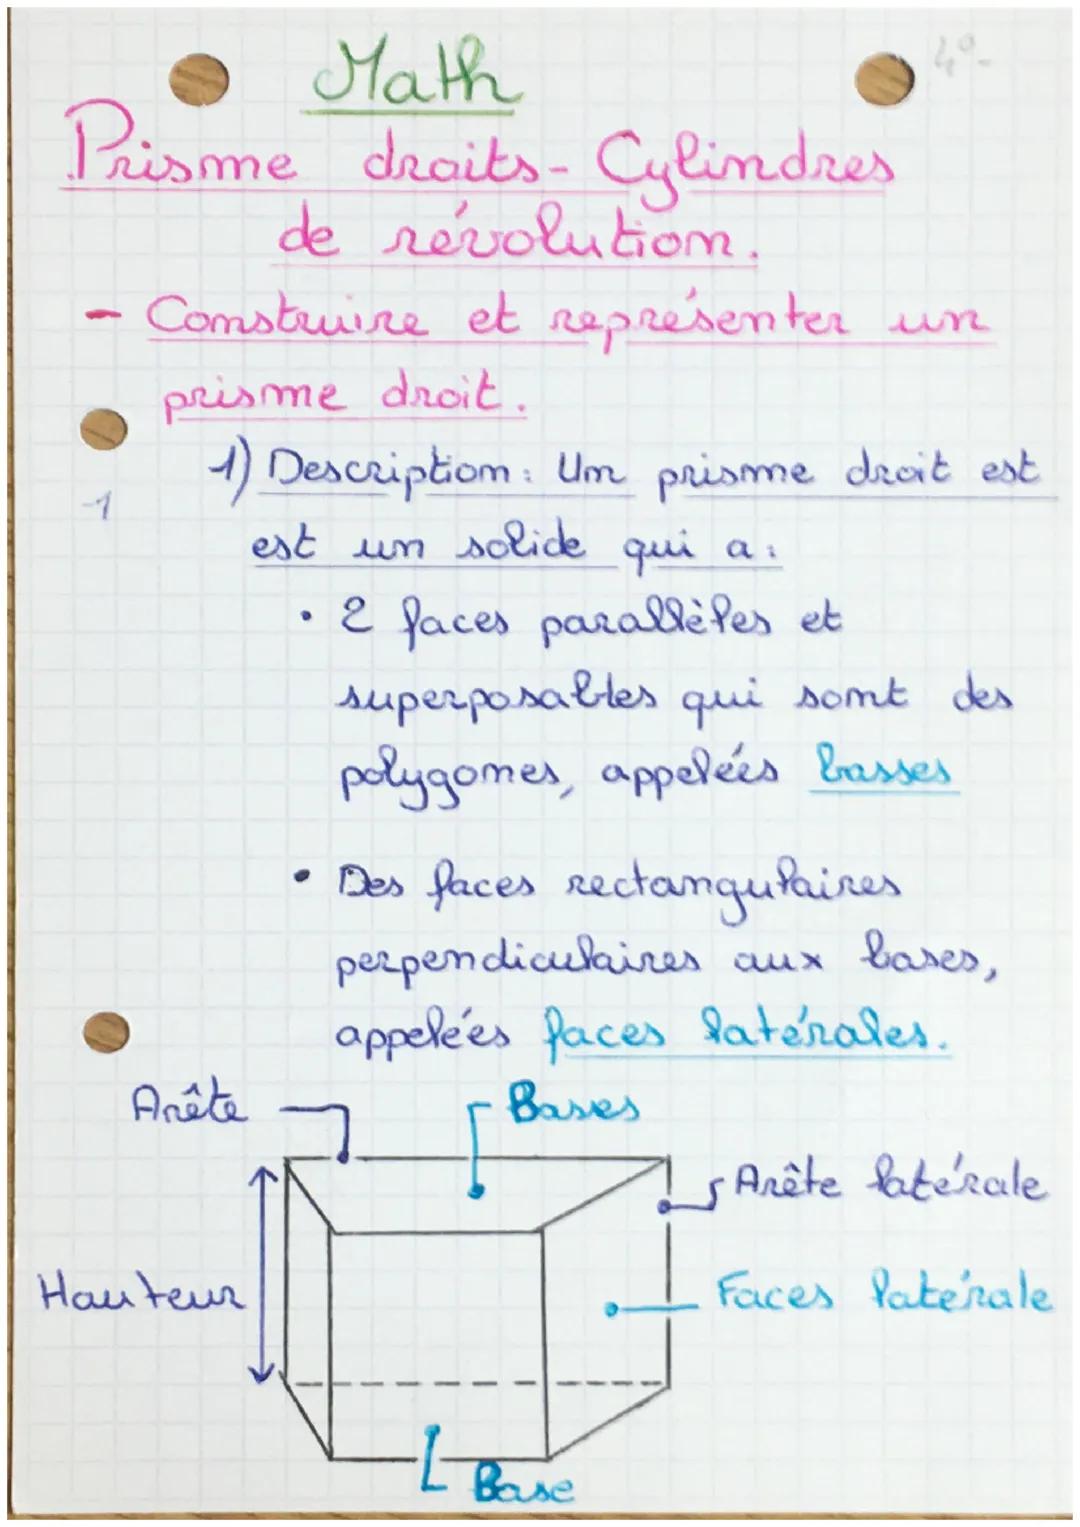 Math
4°-
Prisme droits - Cylindres
de révolution.
- Construire et représenter un
prisme droit.
1) Description : Un prisme droit est
-1
est un solide qui a :
• 2 faces parallèles et
superposables qui sont des
polygones, appelées basses
• Des faces rectangulaires
perpendiculaires aux bases,
appelées faces latérales.
Arête
Bases
Arête latérale
Hauteur
Faces latérale
Base